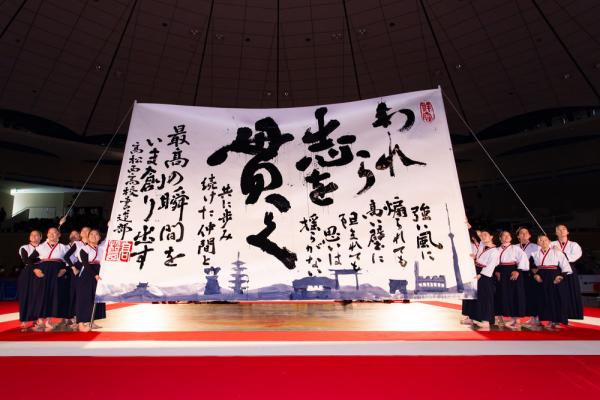 われら
志を
貫く
強い風に
煽られても
高い壁に
阻まれても
思いは
揺るがない
共に歩み
続けた仲間と
最高の瞬間を
いま創り出す
高松西高校書道部